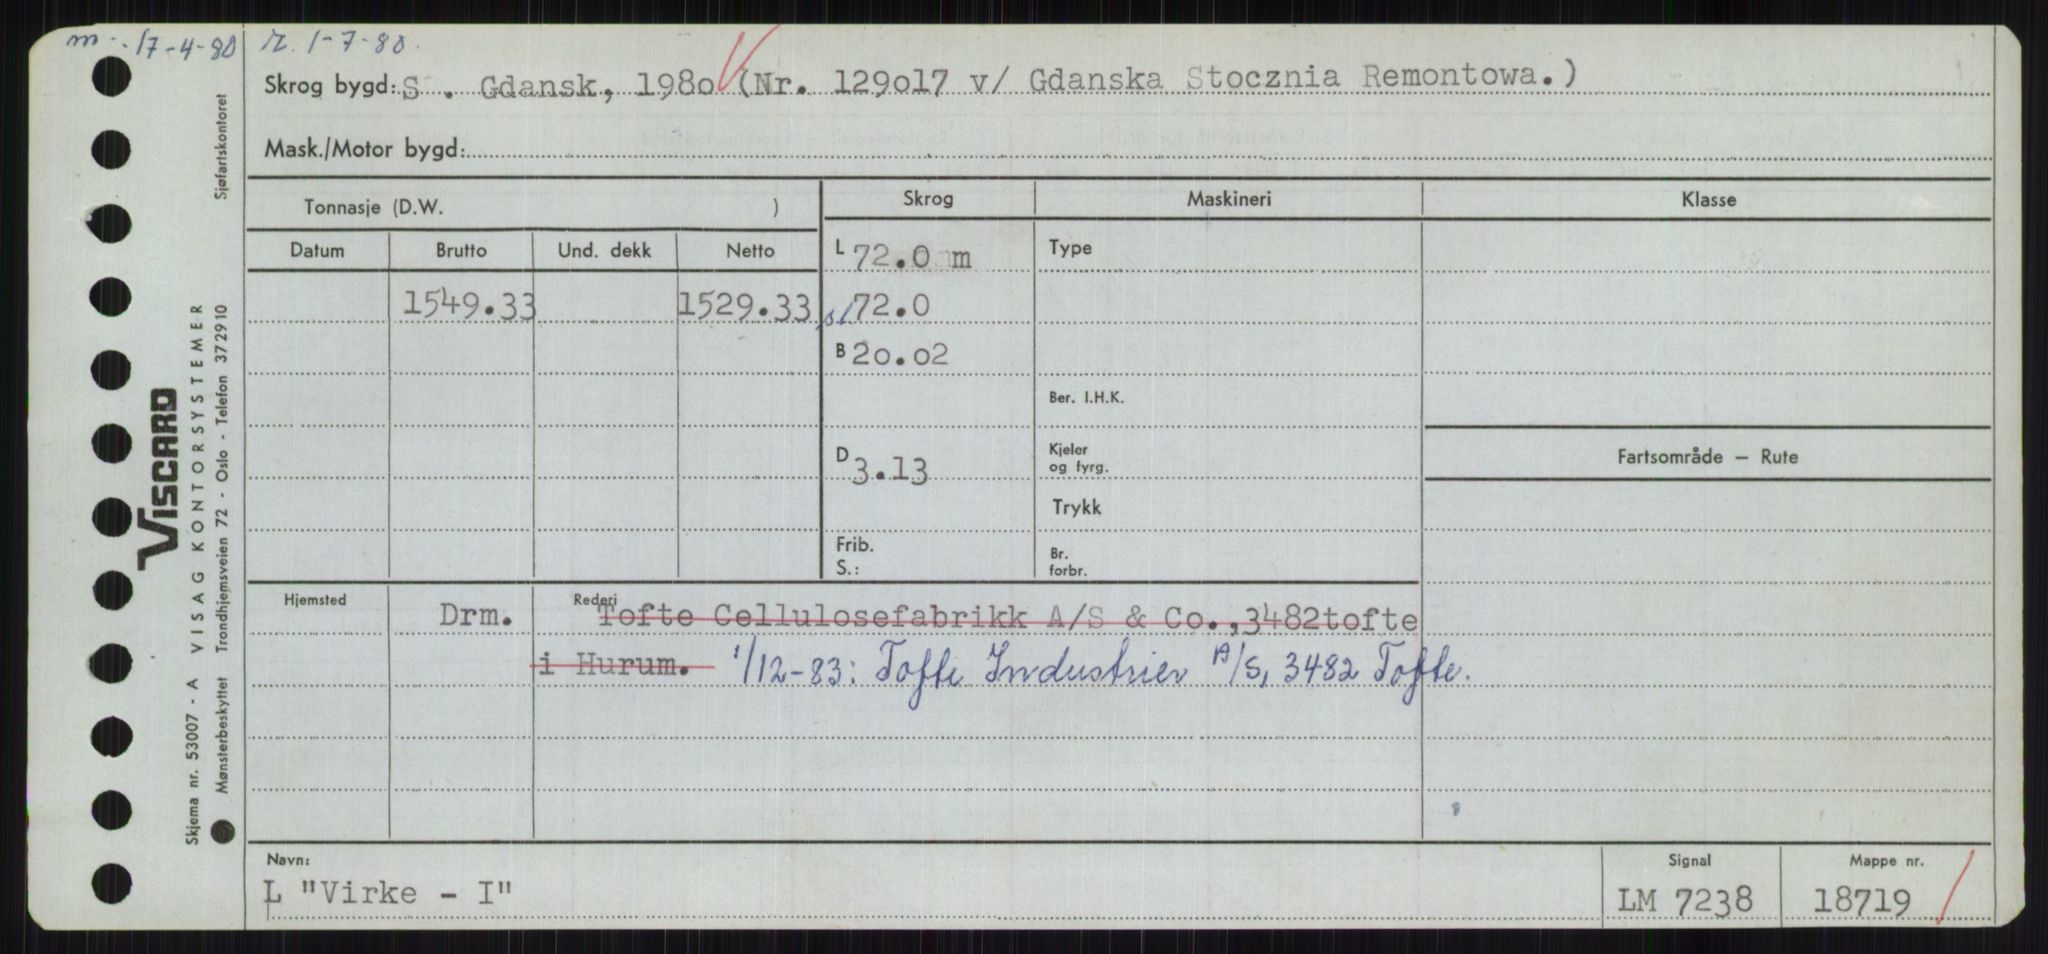 m. 17-4-80 r. 1-7-80.
Skrog bygd: S . Gdansk, 198o (Nr. 129o17 v/ Gdanska Stocznia Remontowa.)
Mask./Motor bygd:
Tonnasje (D.W. ) Skrog Maskineri Klasse
Datum Brutto Und. dekk Netto
L 72.0 m Type
1549.33 1529.33 72.0
B 2o.o2
Ber. I.H.K.
D 3.13 Kjeler
og fyrg.
Fartsområde – Rute
Trykk
Frib.
S.:
Br.
forbr.
Hjemsted Drm. Rederi Tofte Cellulosefabrikk A/S & Co.,3482tofte
i Hurum. 1/12-83: Tofte Industrier A/S, 3482 Tofte.
Navn: Signal Mappe nr.
L "Virke - I" LM 7238 18719
Skjema nr. 53007 - A VISAG KONTORSYSTEMER
Mønsterbeskyttet Trondhjemsveien 72 - Oslo - Telefon 372910 Sjøfartskontoret
VISCARD